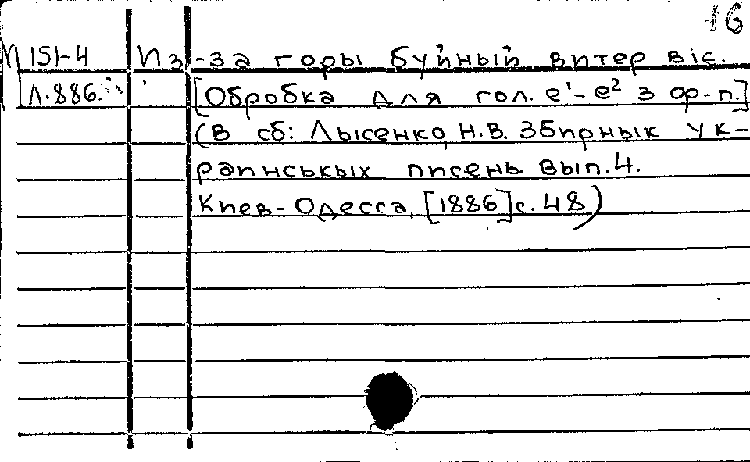 16
П 151-4 Из-за горы буйный витер віє.
Л.886. [Обробка для гол. е¹-е² з ф-п.]
(В сб: Лысенко, Н.В. Збирнык ук-
раинськых писень. Вып. 4.
Киев-Одесса, [1886] с. 48)